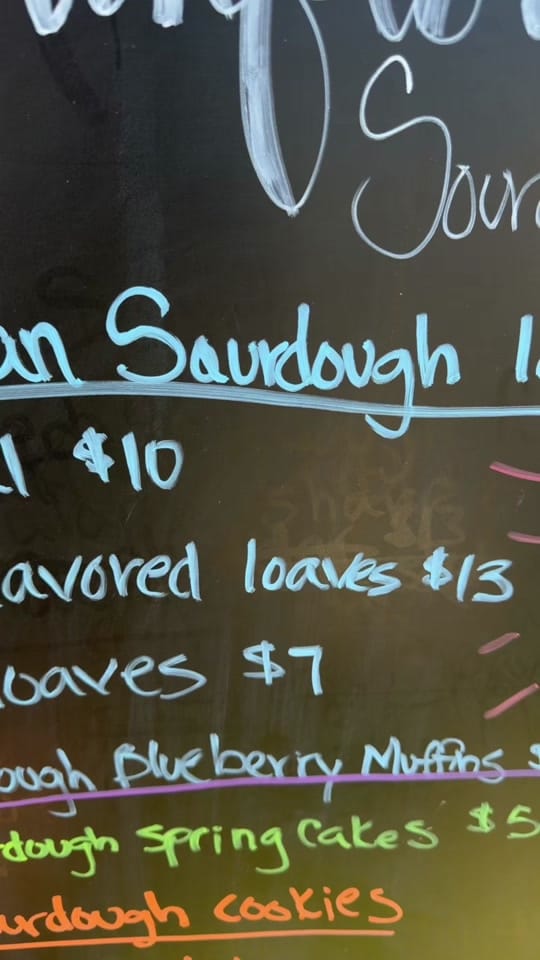 Sour
an Sourdough l
l $10
avored loaves $13
oaves $7
ough Blueberry Muffins $
dough Spring Cakes $5
urdough cookies